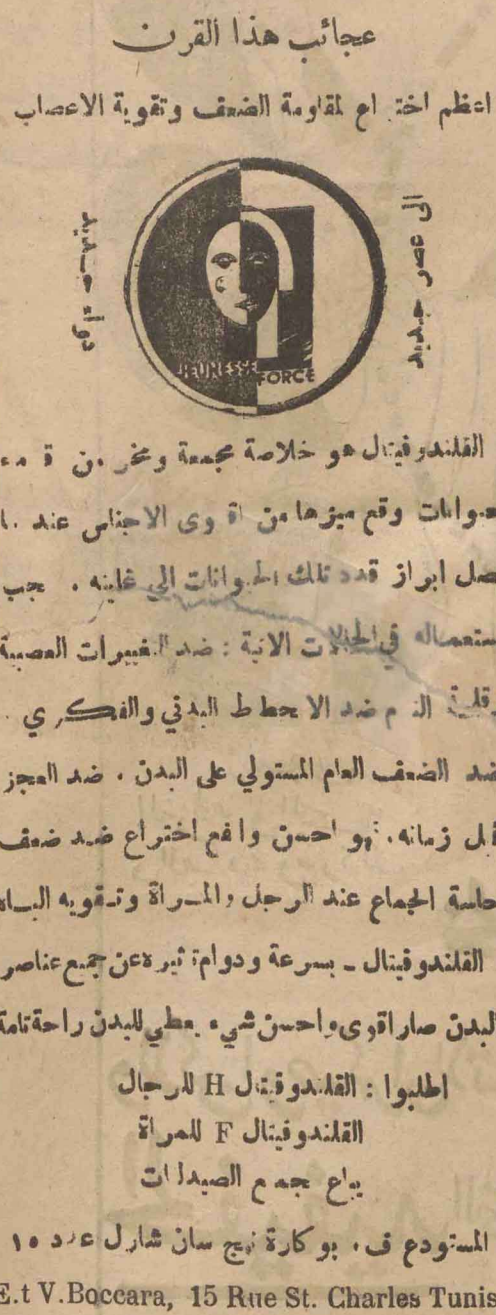 عجائب هذا القرن
اعظم اختراع لمقاومة الضعف وتقوية الاعصاب
الى عصر جديد
دواء جديد
JEUNESSE
FORCE
القلندوفيتال هو خلاصة مجمعة ومخر من
وقع ميزها من اقوى الاجناس عند
ابراز قدد تلك الحيوانات الي غاينه . يجب
في الحالات الاتية : ضد التغييرات العصبية
النوم ضد الانحطاط البدني والفكري .
ضد الضعف العام المستولي على البدن . ضد العجز
قبل زمانه . فهو احسن وانفع اختراع ضد ضعف
حاسة الجماع عند الرجل والمرأة وتقويه الباه
القلندوفيتال - بسرعة ودوام تاثيره عن جميع عناصر
البدن صار اقوى واحسن شيء يعطي للبدن راحة تامة
اطلبوا : القلندوفيتال H للرجال
القلندوفيتال F للمراة
يباع بجميع الصيدليات
المستودع ف . بوكارة نهج سان شارل عدد ١٥
E.t V.Boccara, 15 Rue St. Charles Tunis